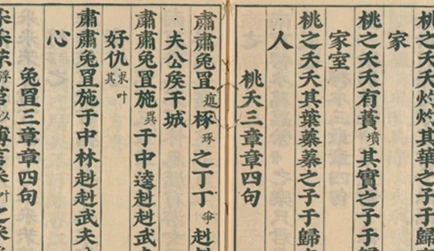 桃之夭夭灼灼其華之子于歸
家
桃之夭夭有蕡墳其實之子于歸
家室
桃之夭夭其葉蓁蓁之子于歸
人
桃夭三章章四句
肅肅兔罝椓琢之丁丁爭赳
夫公侯干城
肅肅兔罝施異于中逵赳赳武夫
好仇求叶其
肅肅兔罝施于中林赳赳武夫
心
兔罝三章章四句
采采芣浮苢以薄言采叶之采